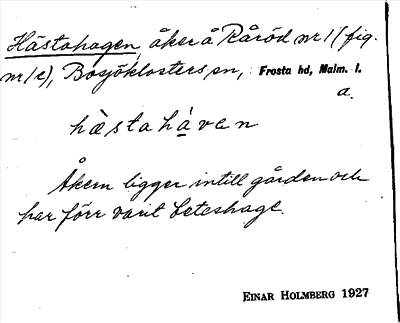 Hästahagen, åker å Råröd nr 1 (fig.
nr 1c), Bosjöklosters sn, Frosta hd, Malm. l.
a.
hàstahàven
Åkern ligger intill gården och
har förr varit beteshage.
EINAR HOLMBERG 1927